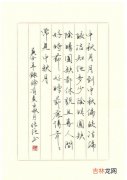 中秋月月到中秋偏皎洁偏
皎洁知他多少阴晴圆缺
阴晴圆缺都休说且喜人间
好时节好时节愿得年年
常见中秋月